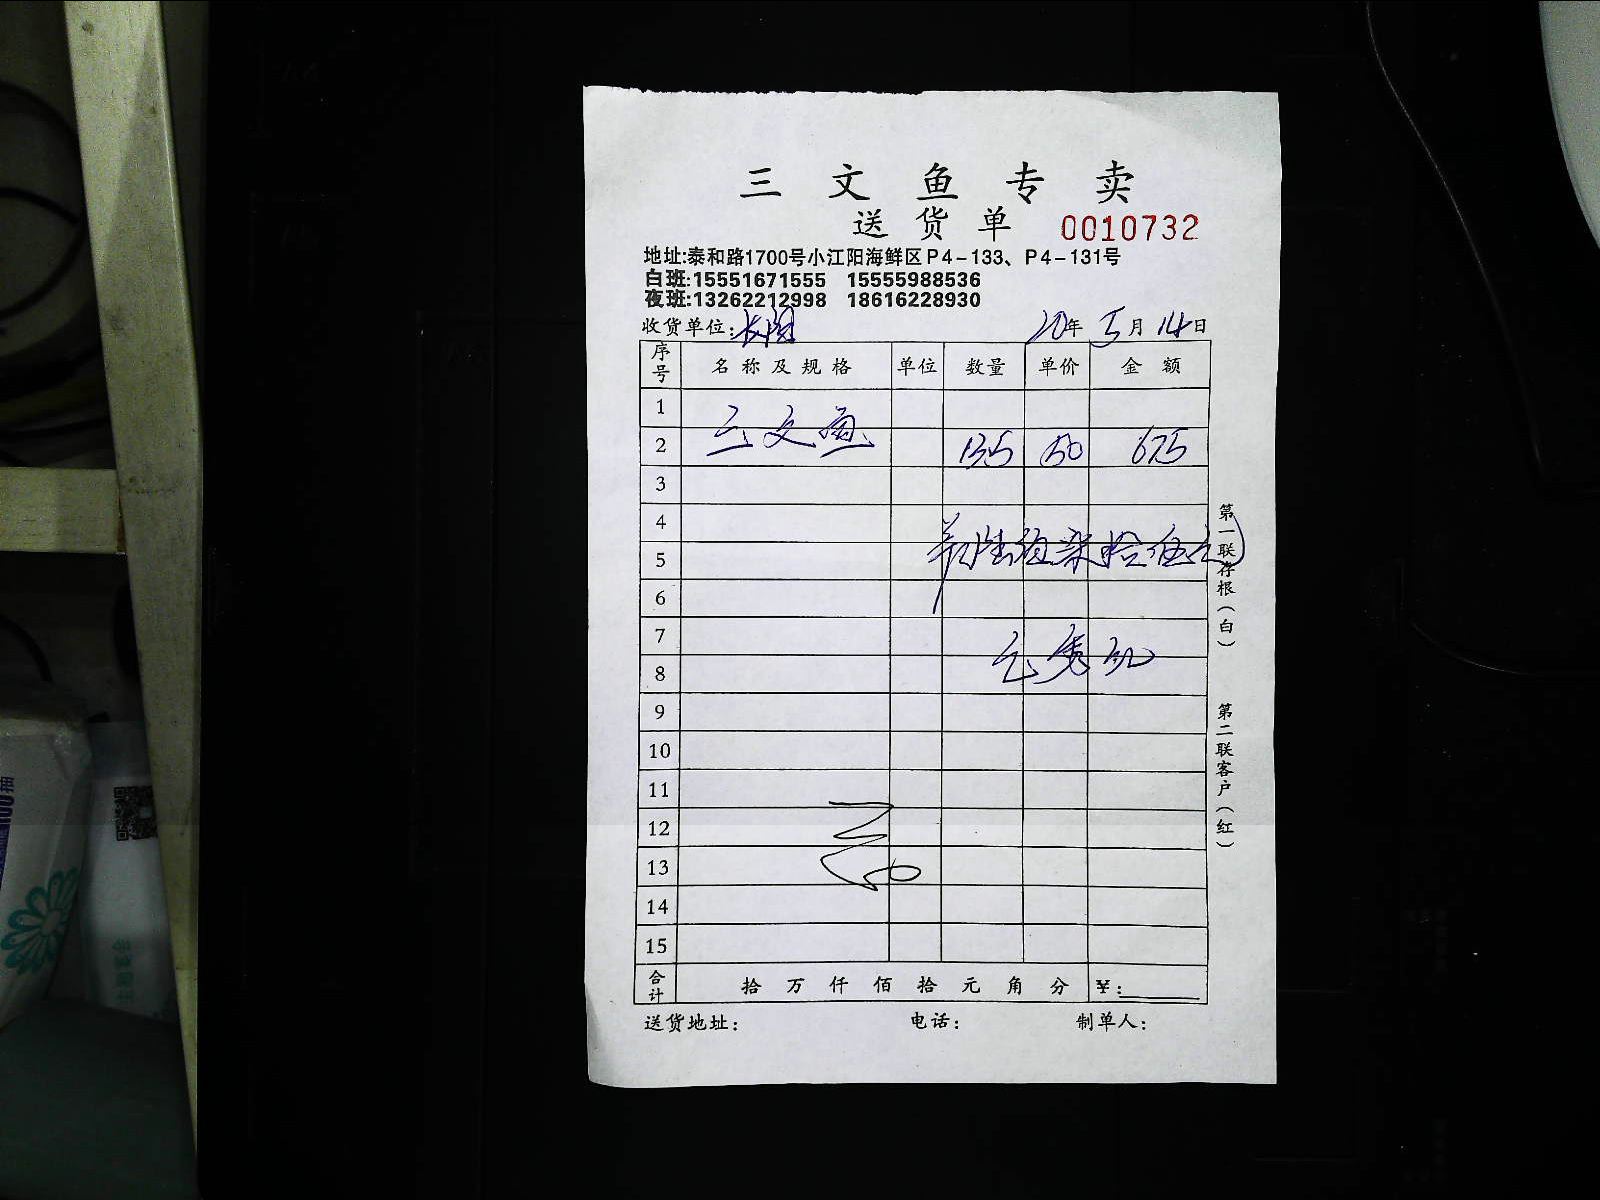 三文鱼专卖
送货单 0010732
地址:泰和路1700号小江阳海鲜区P4-133、P4-131号
白班:15551671555 15555988536
夜班:13262212998 18616228930
收货单位: 20年5月14日
序号 名称及规格 单位 数量 单价 金额
1
2 三文鱼 13.5 50 675
3
4
5 陆佰柒拾伍元
6
7
8
9
10
11
12
13
14
15
合计 拾万仟佰拾元角分 ¥:
送货地址: 电话: 制单人:
第一联存根(白)
第二联客户(红)